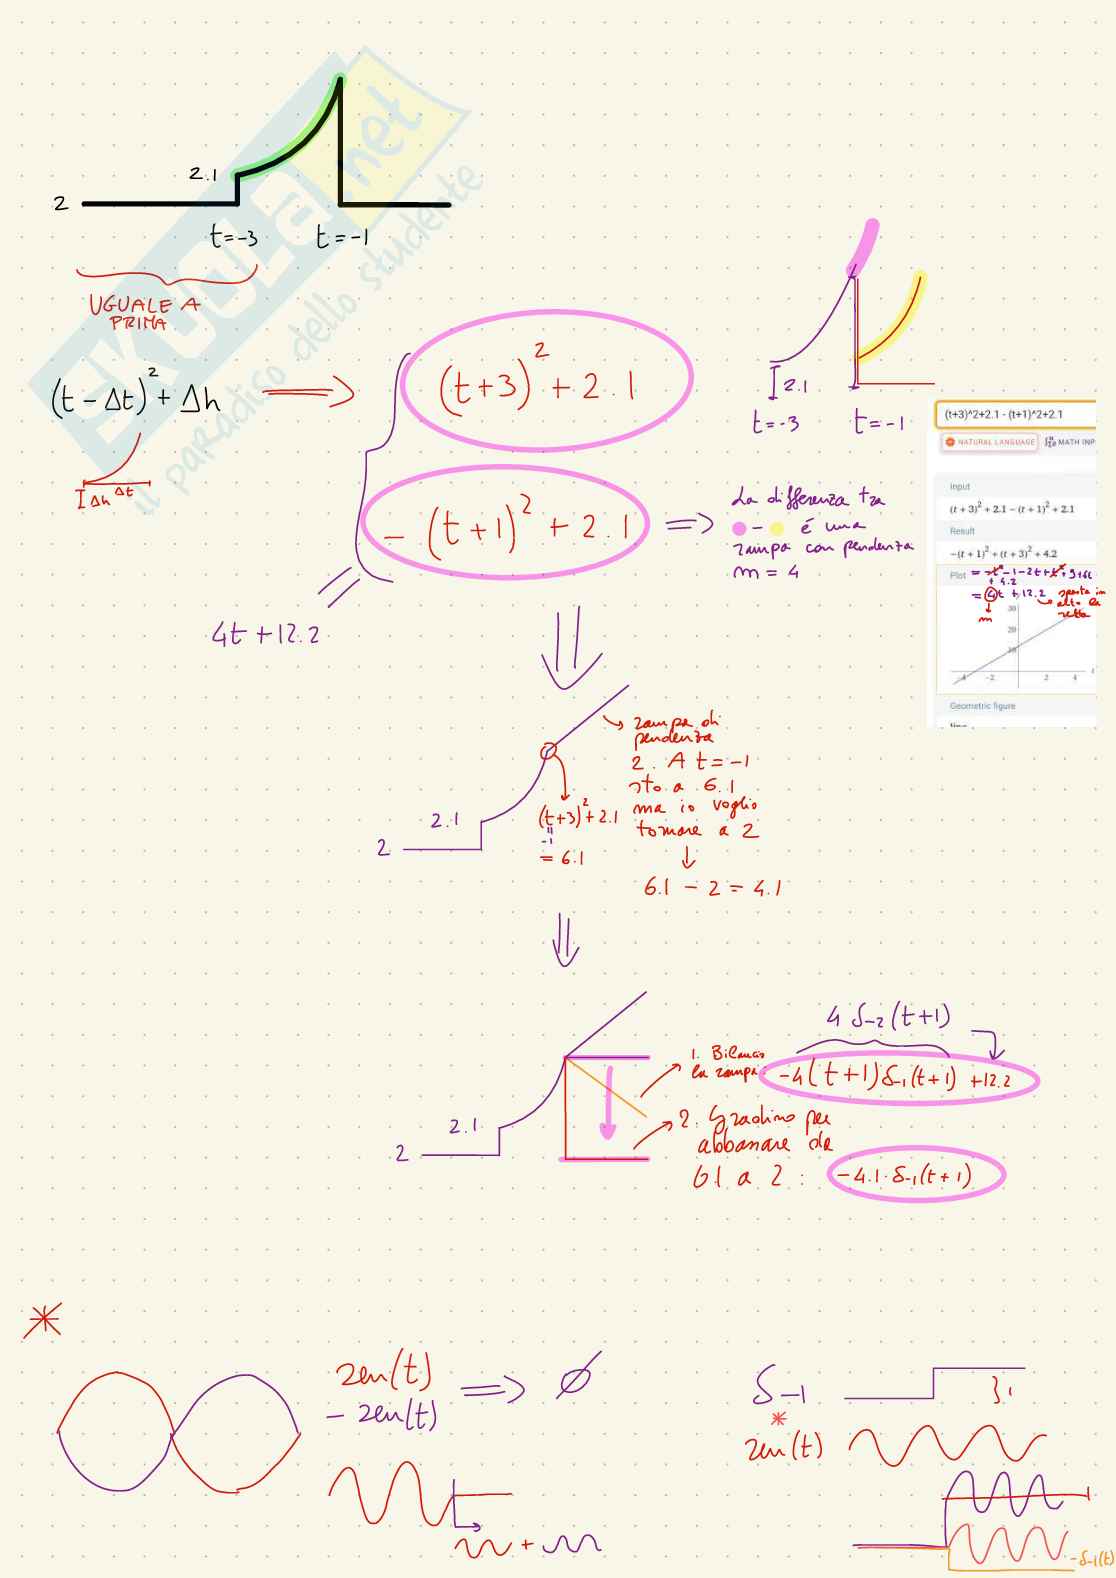 2.1
2
t=-3
t=-1
UGUALE A
PRIMA
(t-Δt)² + Δh
Δh Δt
(t+3)² + 2.1
- (t+1)² + 2.1
4t + 12.2
2.1
t=-3
t=-1
La differenza tra
- è una
rampa con pendenza
m = 4
(t+3)^2+2.1 - (t+1)^2+2.1
NATURAL LANGUAGE
MATH INP
Input
(t + 3)² + 2.1 - (t + 1)² + 2.1
Result
-(t + 1)² + (t + 3)² + 4.2
Plot
= -t² -1-2t+t²+9+6t
+ 4.2
= 4t + 12.2
m
sposta in
alto la
retta
30
20
10
-4
-2
2
4
t
Geometric figure
line
rampa di
pendenza
2. A t = -1
sto a 6.1
ma io voglio
tornare a 2
6.1 - 2 = 4.1
2.1
2
(t+3)² + 2.1
-1
= 6.1
4 δ-2(t+1)
1. Bilancio
la rampa:
-4(t+1)δ-1(t+1) +12.2
2. Gradino per
abbassare da
6.1 a 2:
-4.1·δ-1(t+1)
2.1
2
sen(t)
- sen(t)
⇒ ∅
+
δ-1
1
*
sen(t)
-δ-1(t)
SKUOLA.net
il paradiso dello studente